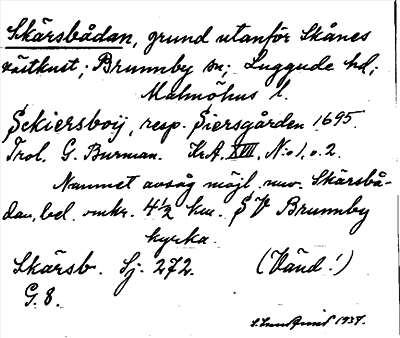 Skärsbådan, grund utanför Skånes
västkust; Brunnby sn; Luggude hd;
Malmöhus l.
Sckiersboij, resp. Siersgården 1695.
Trol. G. Burman. KrA, XVII, N:o 1, o. 2.
Namnet avsåg möjl. nuv. Skärsbå-
dan, bel. omkr. 4 1/2 km. SV Brunnby
kyrka.
Skärsb. Sj. 272. (Vänd!)
G. 8.
S. Lundquist 1934.